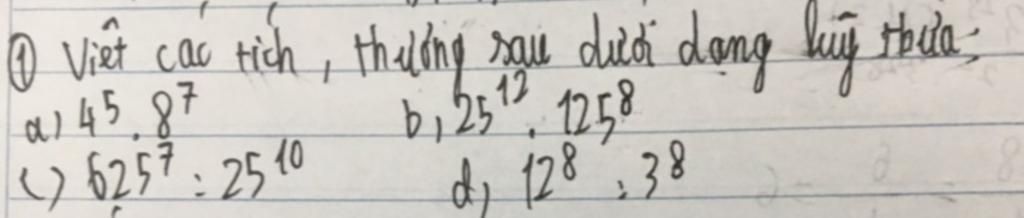 ① Viết các tích, thương sau dưới dạng luỹ thừa:
a) 4⁵ . 8⁷ b, 25¹² . 125⁸
c) 625⁷ : 25¹⁰ d, 12⁸ : 3⁸